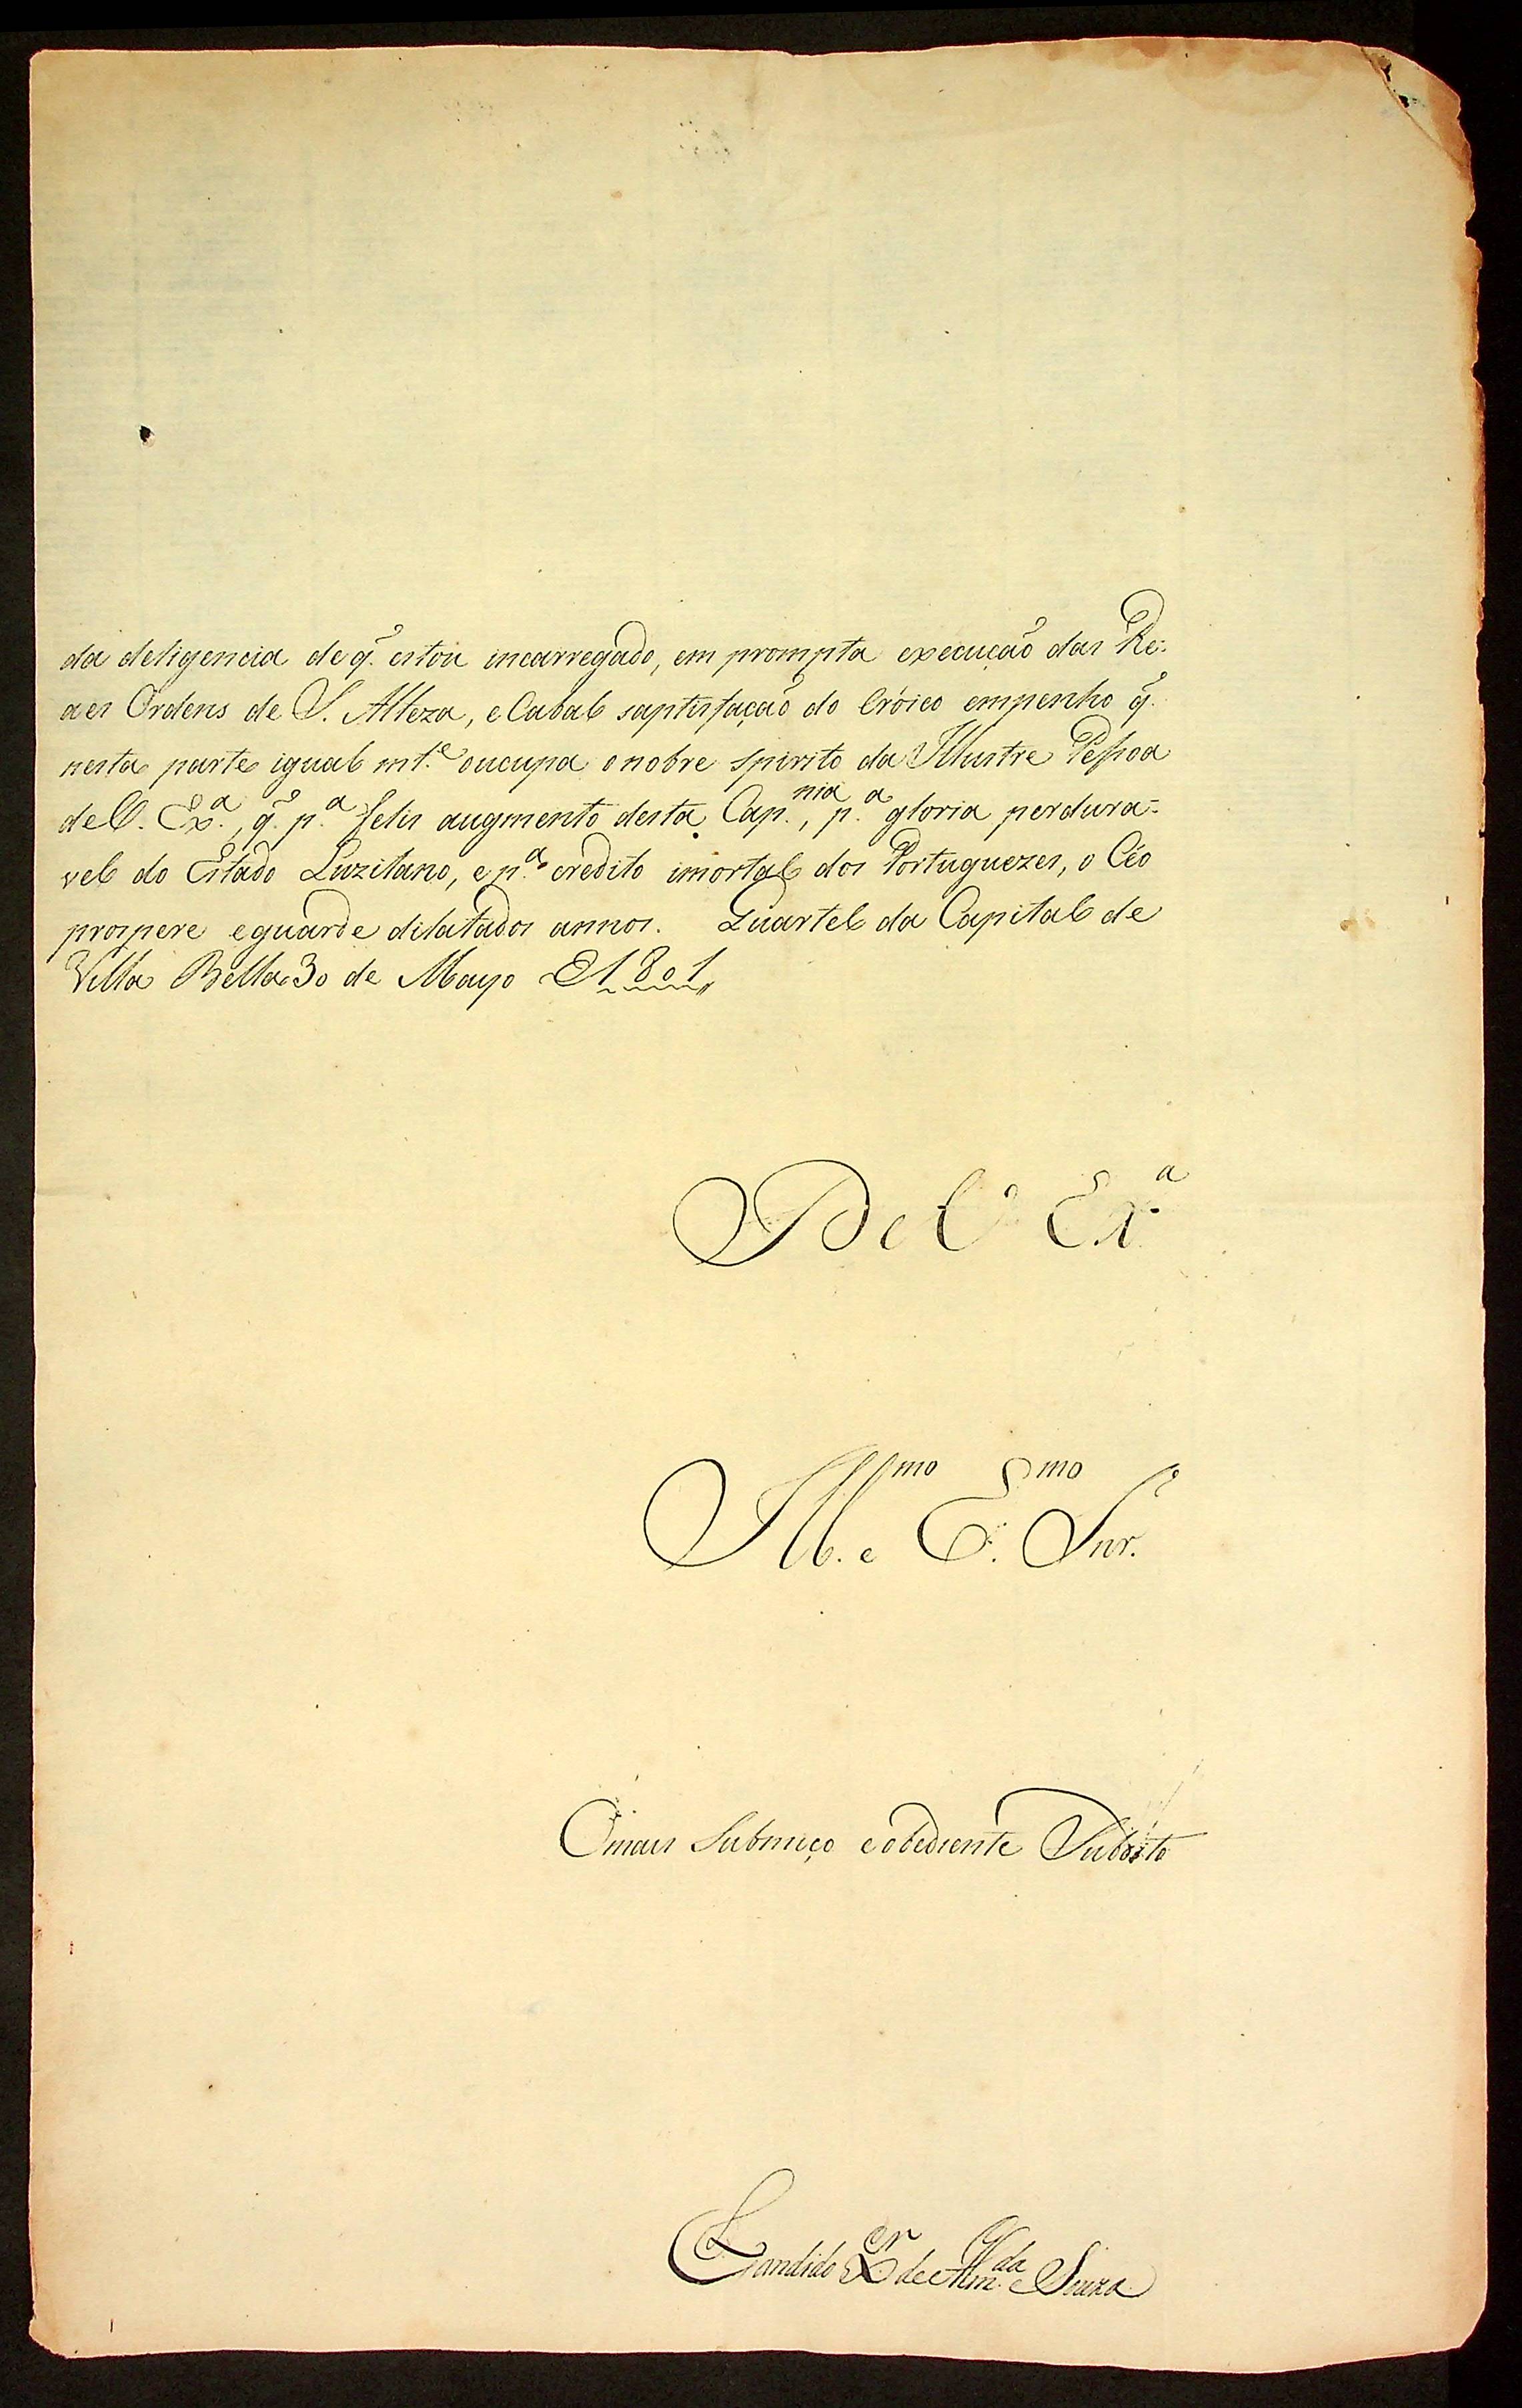 da deligencia de q̃. estou incarregado, em prompta execução das Re=
aes Ordens de S. Alteza, e Cabal saptisfação do Eróico empenho q̃.
nesta parte igual mt.e oucupa o nobre spirito da Illustre Pessoa
de V. Ex.a, q̃. p.a felis augmento desta Cap.nia, p.a gloria perdura=
vel do Estado Luzitano, e p.a credito imortal dos Portuguezes, o Céo
prospere e guarde dilatados annos. Quartel da Capital de
Villa Bella 30 de Mayo D 1801,,
De V Ex.a
Ill.mo e E.mo Snr.
O mais Submiço e obediente Subdito
Candido X.er de Alm.da e Souza